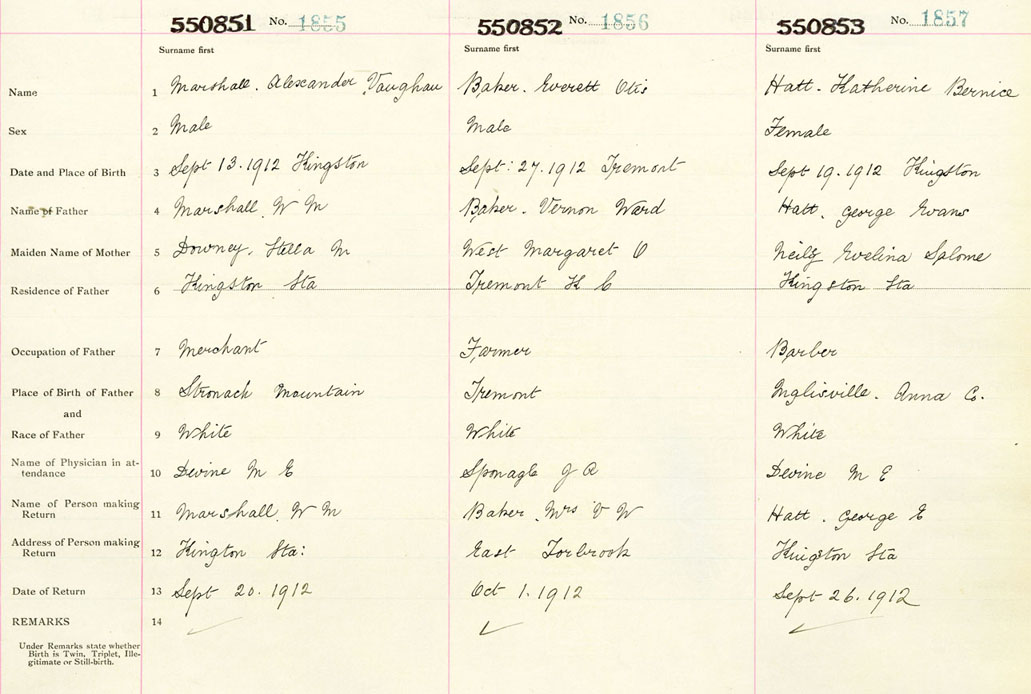 550851 No. 1855 550852 No. 1856 550853 No. 1857
Surname first Surname first Surname first
Name 1 Marshall. Alexander Vaughan Baker. Everett Otis Hatt. Katherine Bernice
Sex 2 Male Male Female
Date and Place of Birth 3 Sept 13. 1912 Kingston Sept: 27. 1912 Tremont Sept 19. 1912 Kingston
Name of Father 4 Marshall. W M Baker. Vernon Ward Hatt. George Evans
Maiden Name of Mother 5 Downey. Stella M West Margaret O Neily Evelina Salome
Residence of Father 6 Kingston Sta Tremont K C Kingston Sta
Occupation of Father 7 Merchant Farmer Barber
Place of Birth of Father 8 Stronach Mountain Tremont Inglisville. Anna Co.
and
Race of Father 9 White White White
Name of Physician in at-
tendance 10 Devine M E Sponagle J R Devine M E
Name of Person making
Return 11 Marshall. W M Baker. Mrs V W Hatt. George E
Address of Person making
Return 12 Kington Sta: East Torbrook Kingston Sta
Date of Return 13 Sept 20. 1912 Oct 1. 1912 Sept 26. 1912
REMARKS 14
Under Remarks state whether
Birth is Twin, Triplet, Ille-
gitimate or Still-birth.